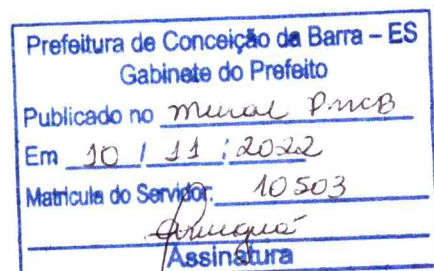 Prefeitura de Conceição da Barra – ES
Gabinete do Prefeito
Publicado no mural PMCB
Em 10 / 11 / 2022
Matricula do Servidor: 10503
Assinatura